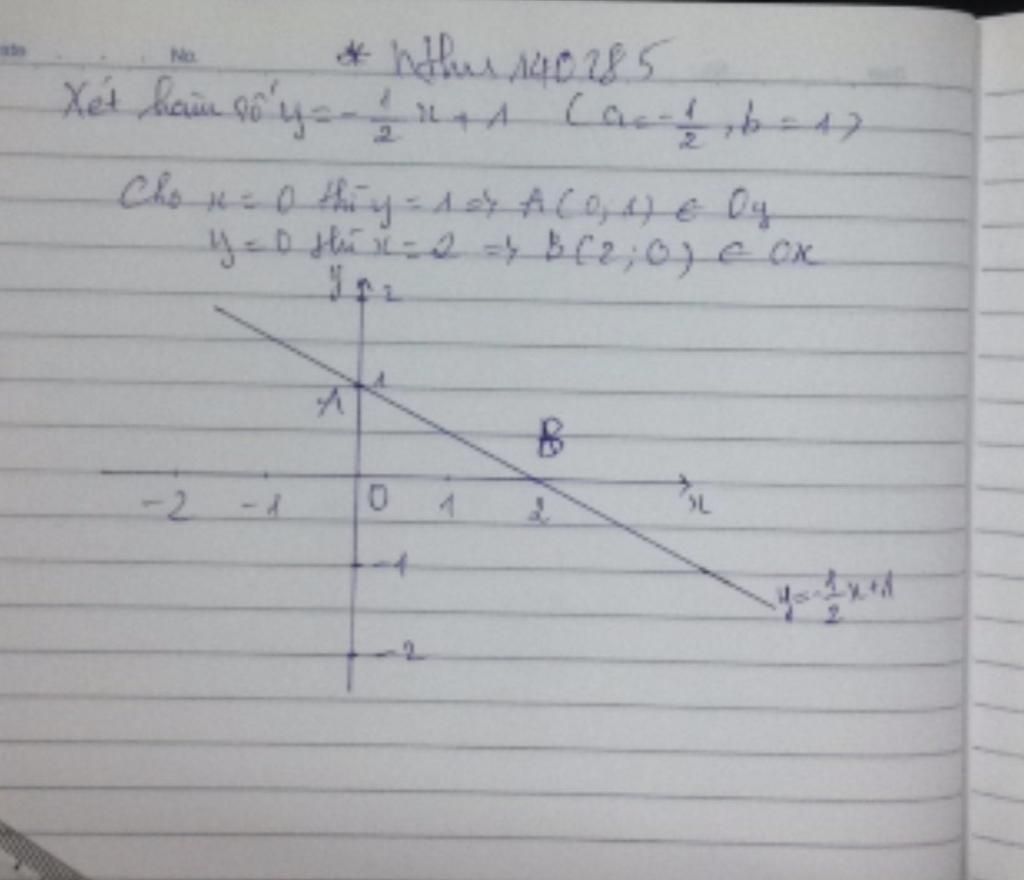 No.
* nthu140285
Xét hàm số y = -1/2 x + 1 (a = -1/2, b = 1)
Cho x = 0 thì y = 1 => A(0,1) ∈ Oy
y = 0 thì x = 2 => B(2;0) ∈ Ox
y 2
A 1
B
-2 -1 0 1 2 x
-1
y = -1/2 x + 1
-2